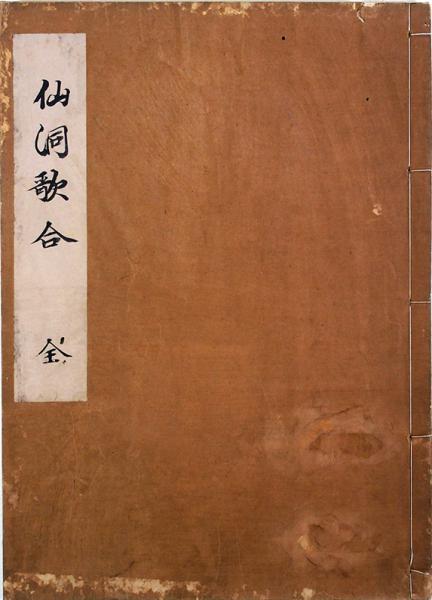 仙洞歌合 全